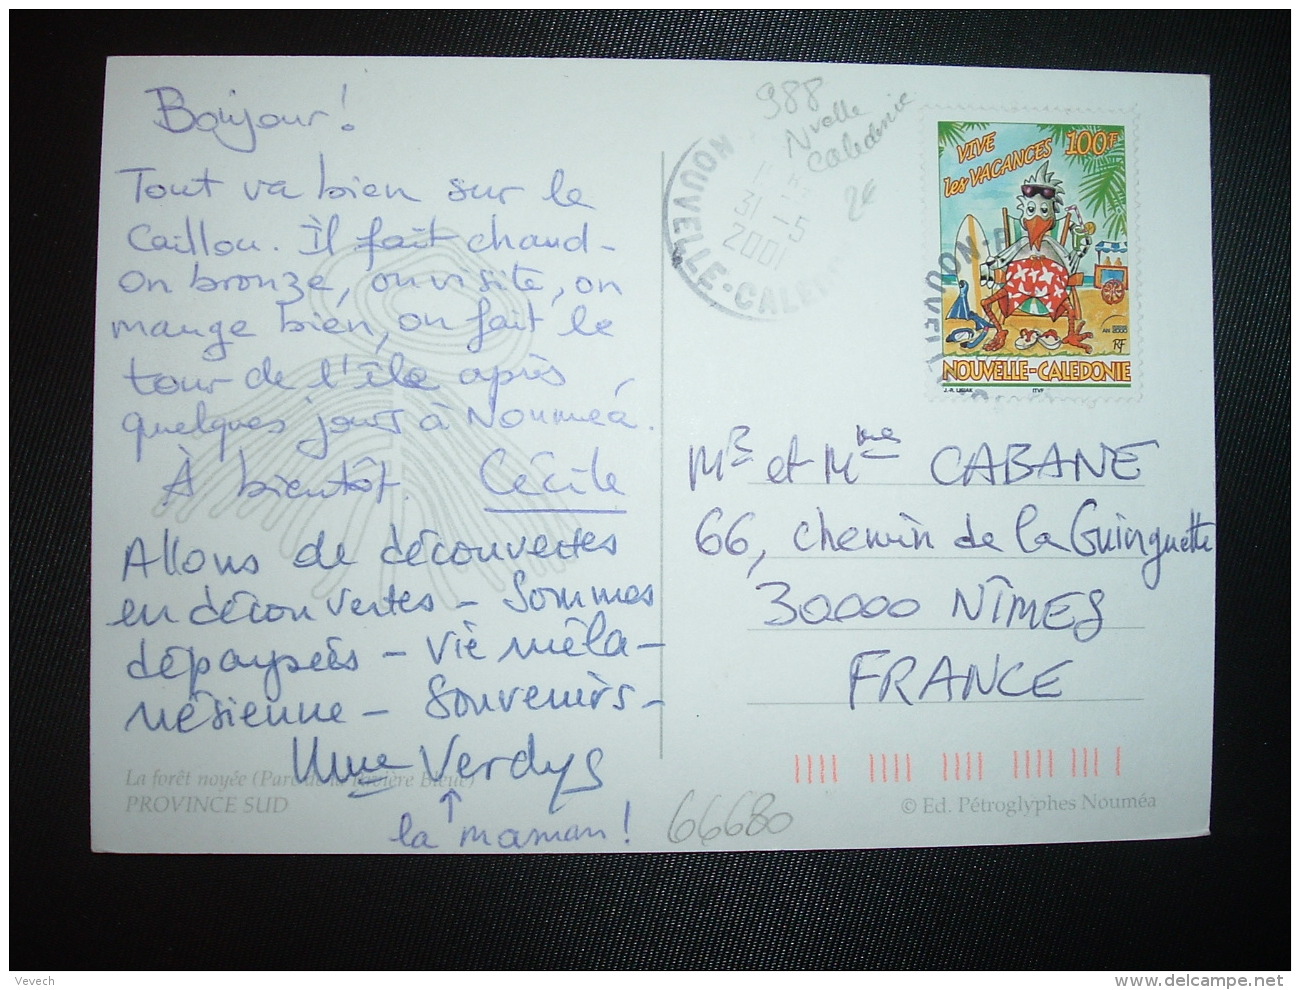 Bonjour !
Tout va bien sur le
Caillou. Il fait chaud -
On bronze, on visite, on
mange bien, on fait le
tour de l'île après
quelques jours à Nouméa.
À bientôt. Cécile
Allons de découvertes
en découvertes - Sommes
dépaysées - vie méla-
nésienne - Souvenirs -
Mme Verdys
↑
la maman !
La forêt noyée (Parc de la Rivière Bleue)
PROVINCE SUD
988
Nvelle
Calédonie
2€
NOUVELLE-CALEDO
31 -5
2001
VIVE
les VACANCES
100F
AN 2000
RF
NOUVELLE-CALEDONIE
J.-R. LISIAK ITVF
Mr et Mme CABANE
66, chemin de la Guinguette
30000 NÎMES
FRANCE
© Ed. Pétroglyphes Nouméa
66680
Vevech
www.delcampe.net